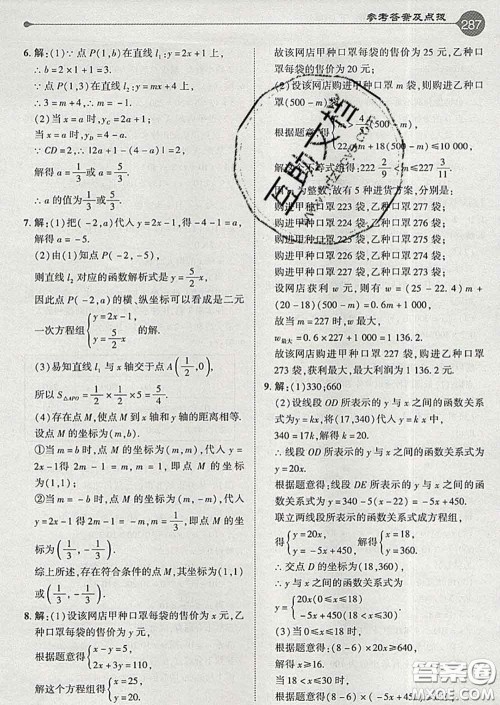 参考答案及点拨
287
6.解:(1)∵点 P(1,b)在直线 l₁:y=2x+1 上,
∴b=2×1+1=3.
∵点 P(1,3)在直线 l₂:y=mx+4 上,
∴3=m+4,∴m=-1.
(2)当 x=a 时,y_C=2a+1;
当 x=a 时,y_D=4-a.
∵CD=2,∴|2a+1-(4-a)|=2.
解得 a=1/3 或 a=5/3.
∴a 的值为 1/3 或 5/3.
7.解:(1)把(-2,a)代入 y=2x-1,得-4-1=a,
解得 a=-5.
(2)由(1)知点 P(-2,-5),
则直线 l₂ 对应的函数解析式是 y=5/2 x,
因此点 P(-2,a)的横、纵坐标可以看成是二元
一次方程组{y=2x-1, y=5/2 x 的解.
(3)易知直线 l₁ 与 x 轴交于点 A(1/2,0),
所以 S△APO=1/2×1/2×5=5/4.
(4)存在点 M,使点 M 到 x 轴和 y 轴的距离相等.
设点 M 的坐标为(m,n).
①当 m=n 时,点 M 的坐标为(m,m),代入
y=2x-1 得 2m-1=m,m=1,即点 M 的坐
标为(1,1);
②当 m=-n 时,点 M 的坐标为(m,-m),代入
y=2x-1 得 2m-1=-m,m=1/3,即点 M 的坐
标为(1/3,-1/3).
综上所述,存在符合条件的点 M,坐标为(1,1)
或(1/3,-1/3).
8.解:(1)设该网店甲种口罩每袋的售价为 x 元,乙
种口罩每袋的售价为 y 元,
根据题意得{x-y=5, 2x+3y=110,
解这个方程组得{x=25, y=20,
故该网店甲种口罩每袋的售价为 25 元,乙种口
罩每袋的售价为 20 元;
(2)设该网店购进甲种口罩 m 袋,购进乙种口
罩(500-m)袋,
根据题意得
4/5(500-m),
不等式组得:222 2/9<m≤227 3/11,
为整数,故有 5 种进货方案,分别是:
购进甲种口罩 223 袋,乙种口罩 277 袋;
购进甲种口罩 224 袋,乙种口罩 276 袋;
购进甲种口罩 225 袋,乙种口罩 275 袋;
购进甲种口罩 226 袋,乙种口罩 274 袋;
购进甲种口罩 227 袋,乙种口罩 273 袋;
设网店获利 w 元,则有 w=(25-22.4)m+
(20-18)(500-m)=0.6m+1 000,
故当 m=227 时,w 最大,
w最大=0.6×227+1 000=1 136.2,
故该网店购进甲种口罩 227 袋,购进乙种口罩
273 袋时,获利最大,最大利润为 1 136.2 元.
9.解:(1)330;660
(2)设线段 OD 所表示的 y 与 x 之间的函数关系
式为 y=kx,将(17,340)代入 y=kx 中,
340=17k,解得 k=20.
∴线段 OD 所表示的 y 与 x 之间的函数关系式
为 y=20x.
根据题意得:线段 DE 所表示的 y 与 x 之间的函
数关系式为 y=340-5(x-22)=-5x+450.
联立两线段所表示的函数关系式成方程组,
得{y=20x, y=-5x+450,解得{x=18, y=360,
∴交点 D 的坐标为(18,360),
∴y 与 x 之间的函数关系式为
y={20x(0≤x≤18), -5x+450(18<x≤30).
(3)当 0≤x≤18 时,
根据题意得:(8-6)×20x≥640,
解得 x≥16.
当 18<x≤30 时,
根据题意得:(8-6)×(-5x+450)
互助文档
答案圈
MXQE.COM